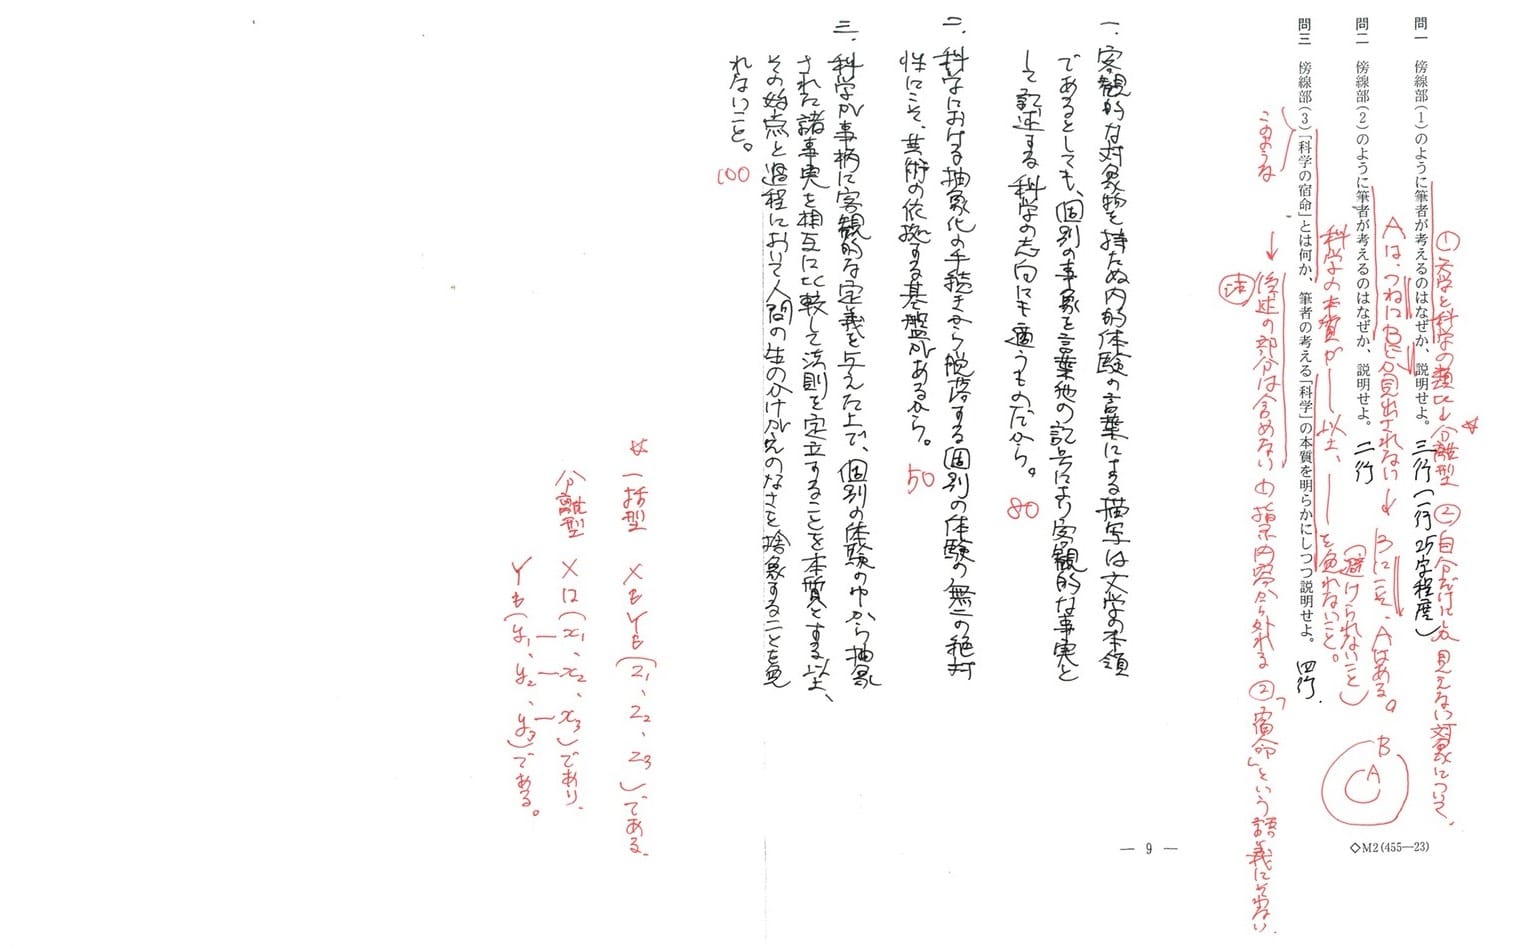 問一　傍線部(1)のように筆者が考えるのはなぜか、説明せよ。三行(一行25字程度)
①文学と科学の類比→分離型 ②自分だけにしか見えない対象について、
問二　傍線部(2)のように筆者が考えるのはなぜか、説明せよ。二行
Aは、つねにBにしか見出されない→Bにこそ、Aはある。
B
A
問三　傍線部(3)「科学の宿命」とは何か、筆者の考える「科学」の本質を明らかにしつつ説明せよ。四行.
科学の本質が—以上、—を免れないこと。
(避けられないこと)
このような
→後述の部分は含めない
注
①指示内容から外れる ②「宿命」という語義にそわない.
一. 客観的な対象物を持たぬ内的体験の言葉による描写は文学の本領
であるとしても、個別の事象を言葉他の記号により客観的な事実と
して記述する科学の志向にも適うものだから。
80
二. 科学における抽象化の手続きから脱落する個別の体験の無二の絶対
性にこそ、芸術の依拠する基盤があるから。
50
三. 科学が事柄に客観的な定義を与えた上で、個別の体験の中から抽象
された諸事実を相互に比較して法則を定立することを本質とする以上、
その始点と過程において人間の生の分けがえのなさを捨象することを免
れないこと。
100
☆一括型　XもYも(z1、z2、z3)である.
分離型　Xは(x1、x2、x3)であり、
Yも(y1、y2、y3)である。
— 9 —
◇M2(455—23)